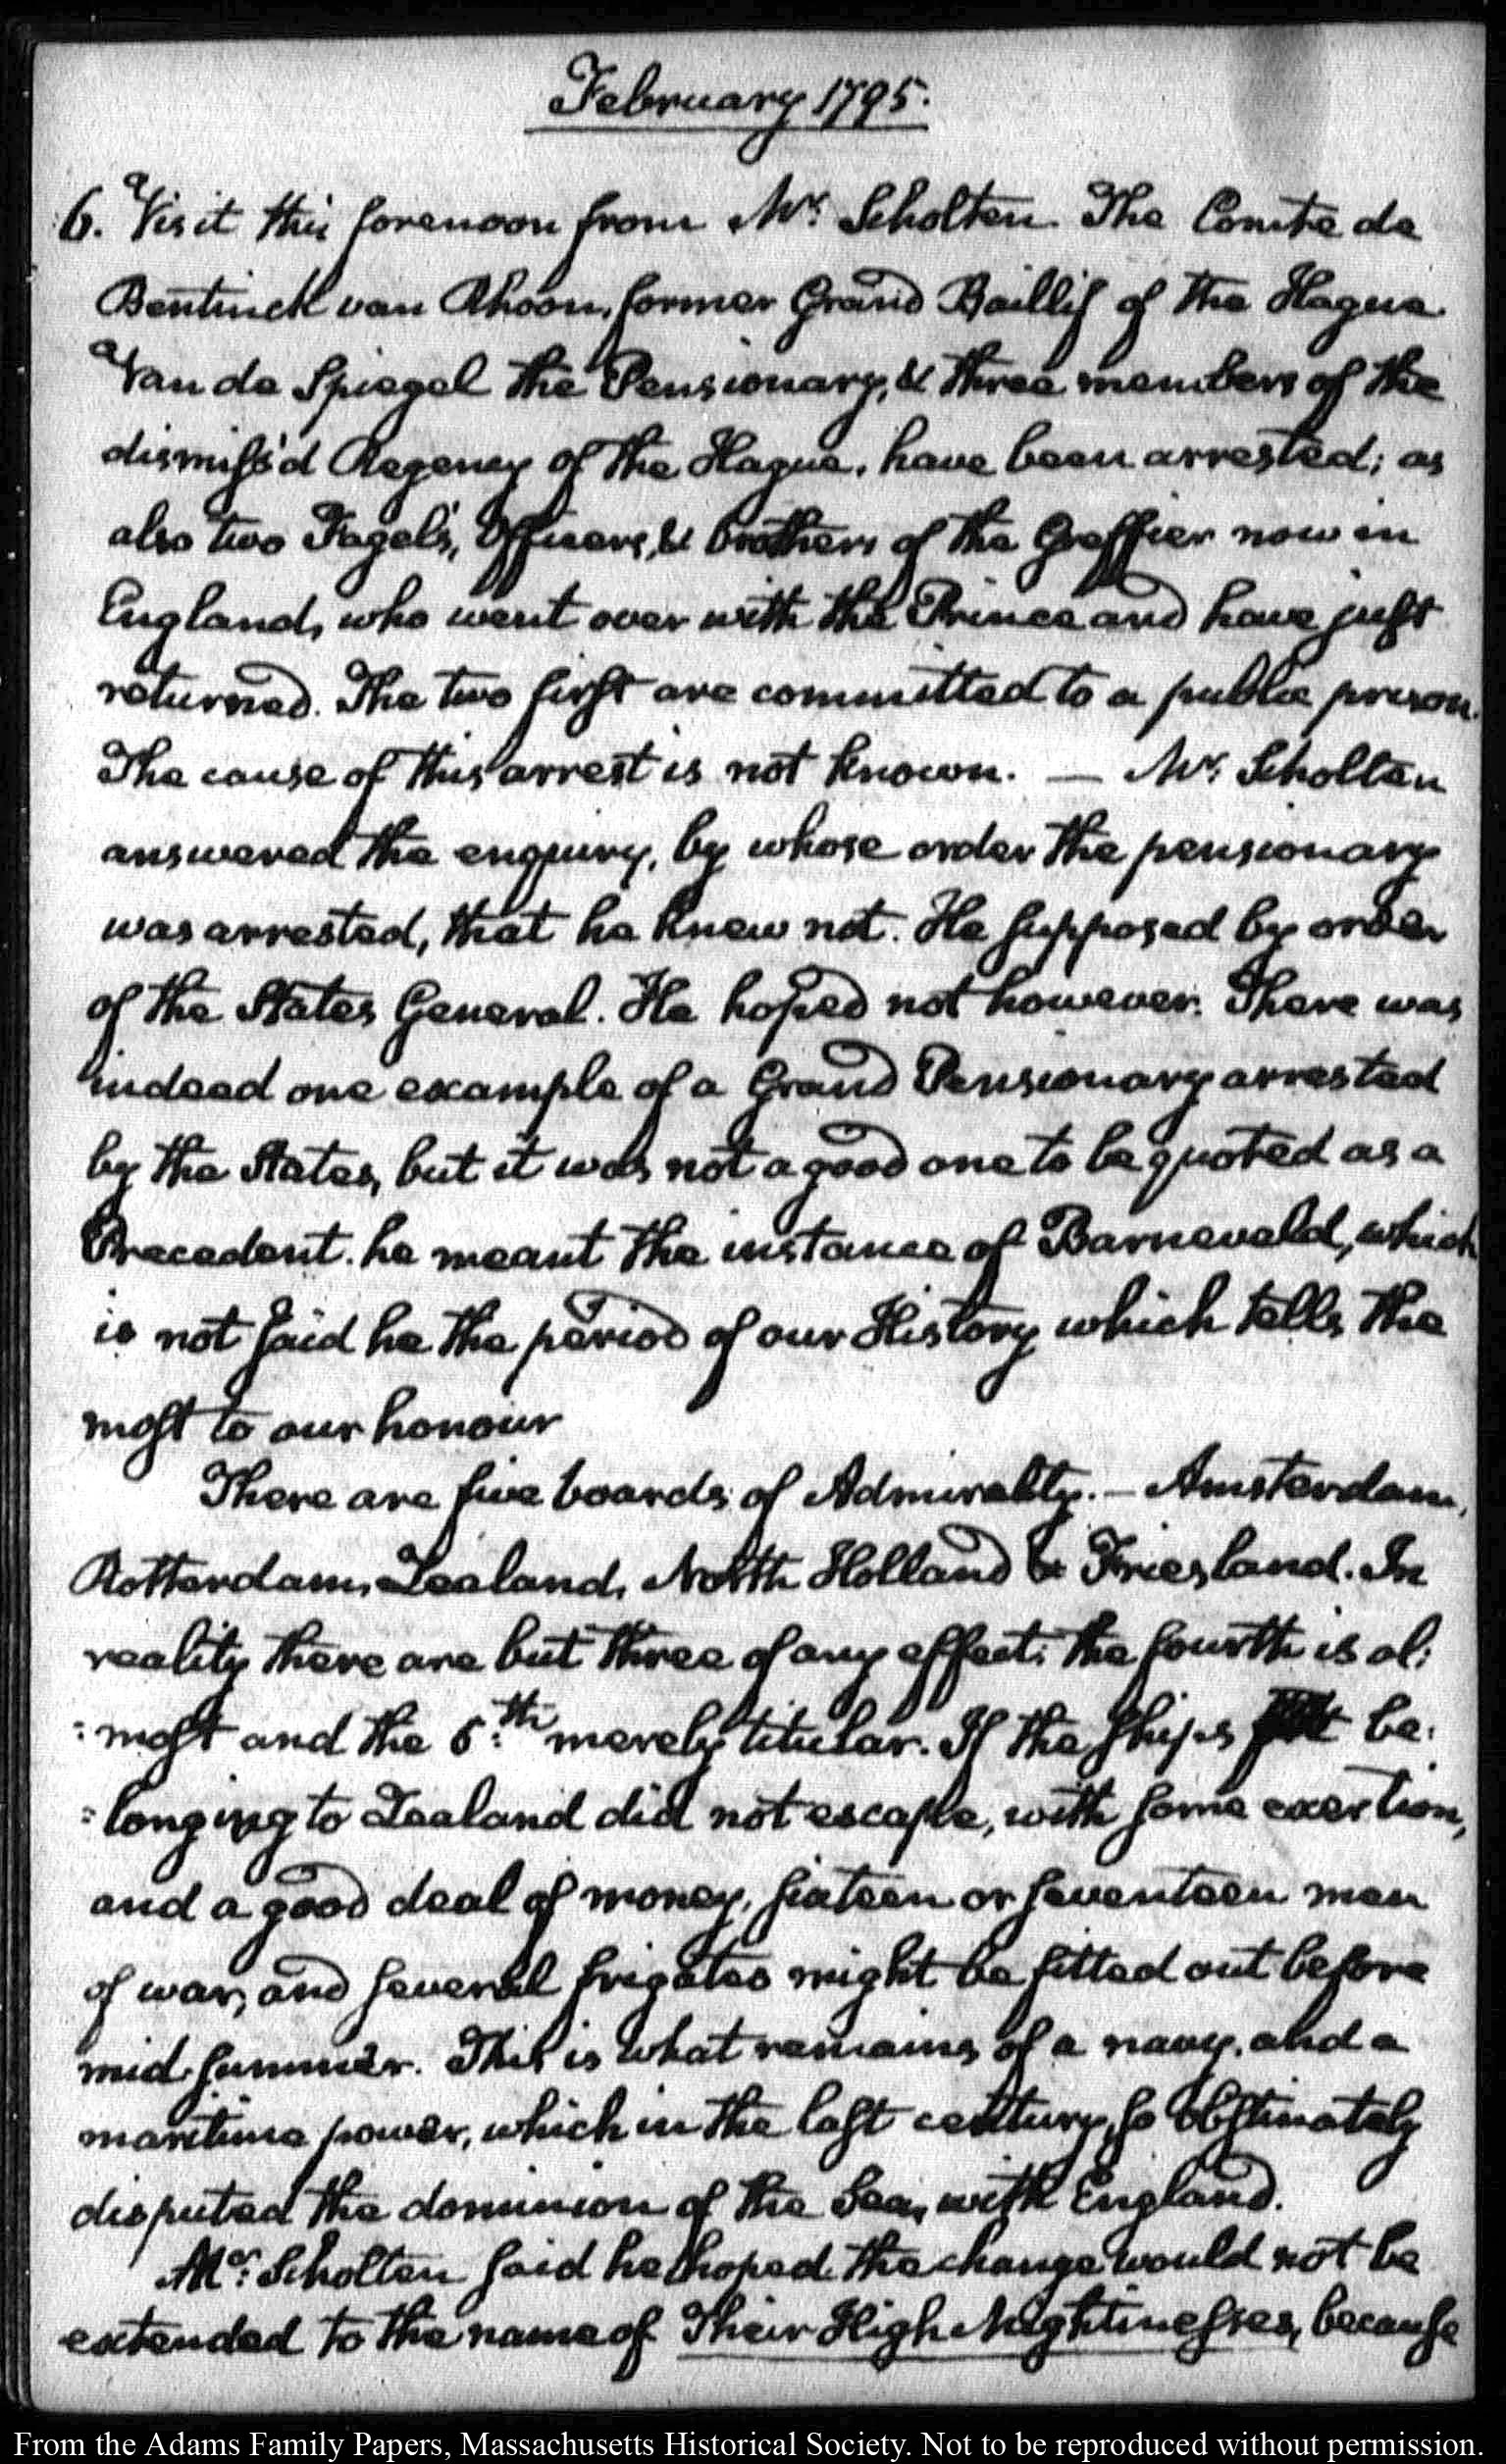 February 1795.
6. Visit this forenoon from Mr. Scholten. The Comte de
Bentinck van Rhoon, former Grand Baillif of the Hague.
Van de Spiegel the Pensionary, & three members of the
dismiss'd Regency of the Hague, have been arrested; as
also two Fagel's, Officers, & brothers of the Greffier now in
England, who went over with the Prince and have just
returned. The two first are committed to a public prison.
The cause of this arrest is not known. — Mr. Scholten
answered the enquiry, by whose order the pensionary
was arrested, that he knew not. He supposed by order
of the States General. He hoped not however. There was
indeed one example of a Grand Pensionary arrested
by the States, but it was not a good one to be quoted as a
Precedent. he meant the instance of Barneveld, which
is not said he the period of our History which tells the
most to our honour
There are five boards of Admiralty. — Amsterdam,
Rotterdam, Zealand, North Holland & Friesland. In
reality there are but three of any effect: the fourth is al:
:most and the 5.th merely titular. If the ships be:
:longing to Zealand did not escape, with some exertion,
and a good deal of money, sixteen or seventeen men
of war, and several frigates might be fitted out before
mid summer. This is what remains of a navy, and a
maritime power, which in the last century, so obstinately
disputed the dominion of the Sea, with England.
Mr. Scholten said he hoped the change would not be
extended to the name of Their High Mightinesses, because
From the Adams Family Papers, Massachusetts Historical Society. Not to be reproduced without permission.